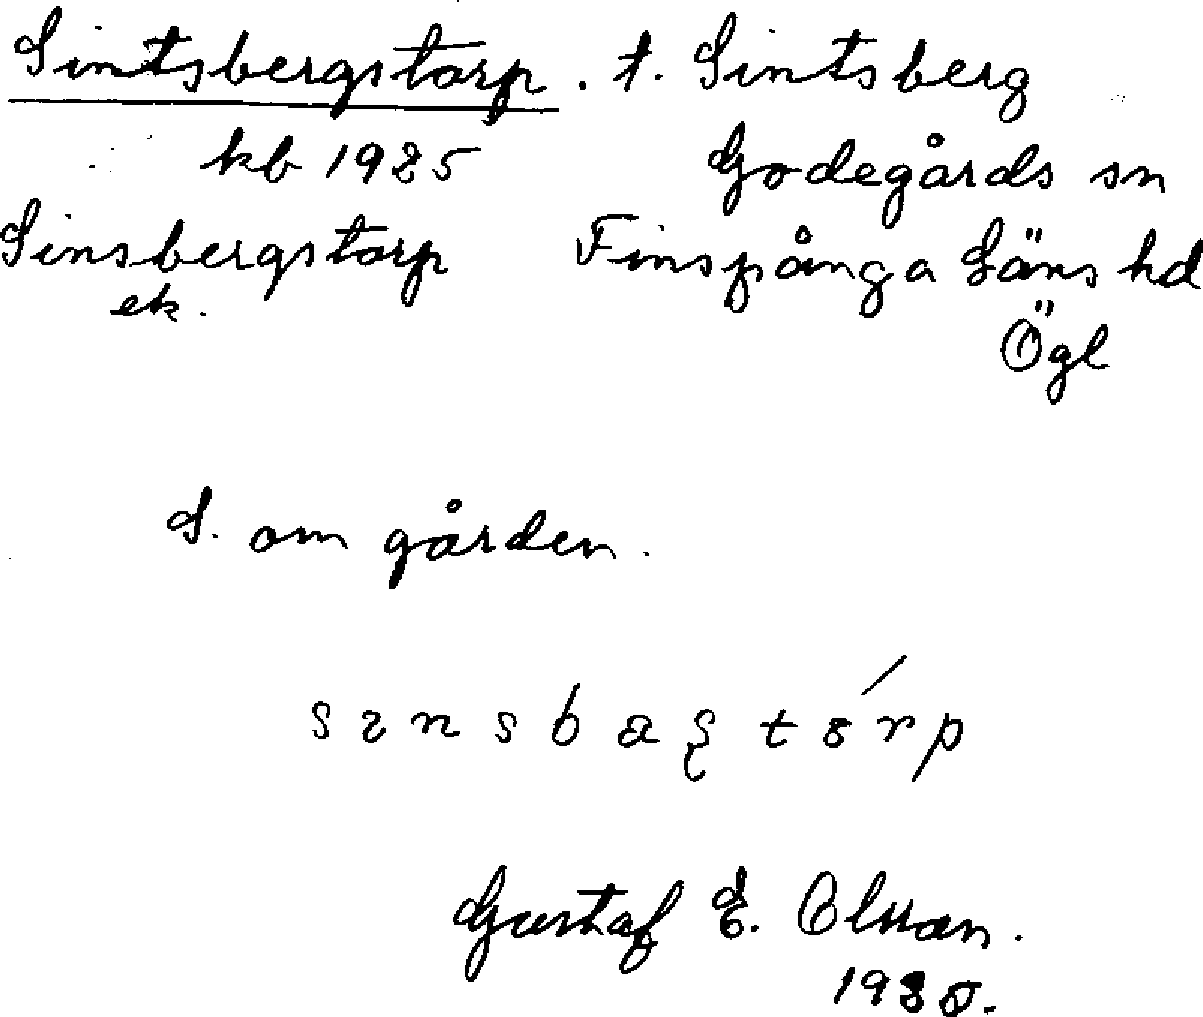 Sintsbergstorp. t. Sintsberg
kb 1925 Godegårds sn
Sinsbergstorp Finspånga Läns hd
ek. Ögl
S. om gården.
sɪnsbaʂtórp
Gustaf E. Olsson.